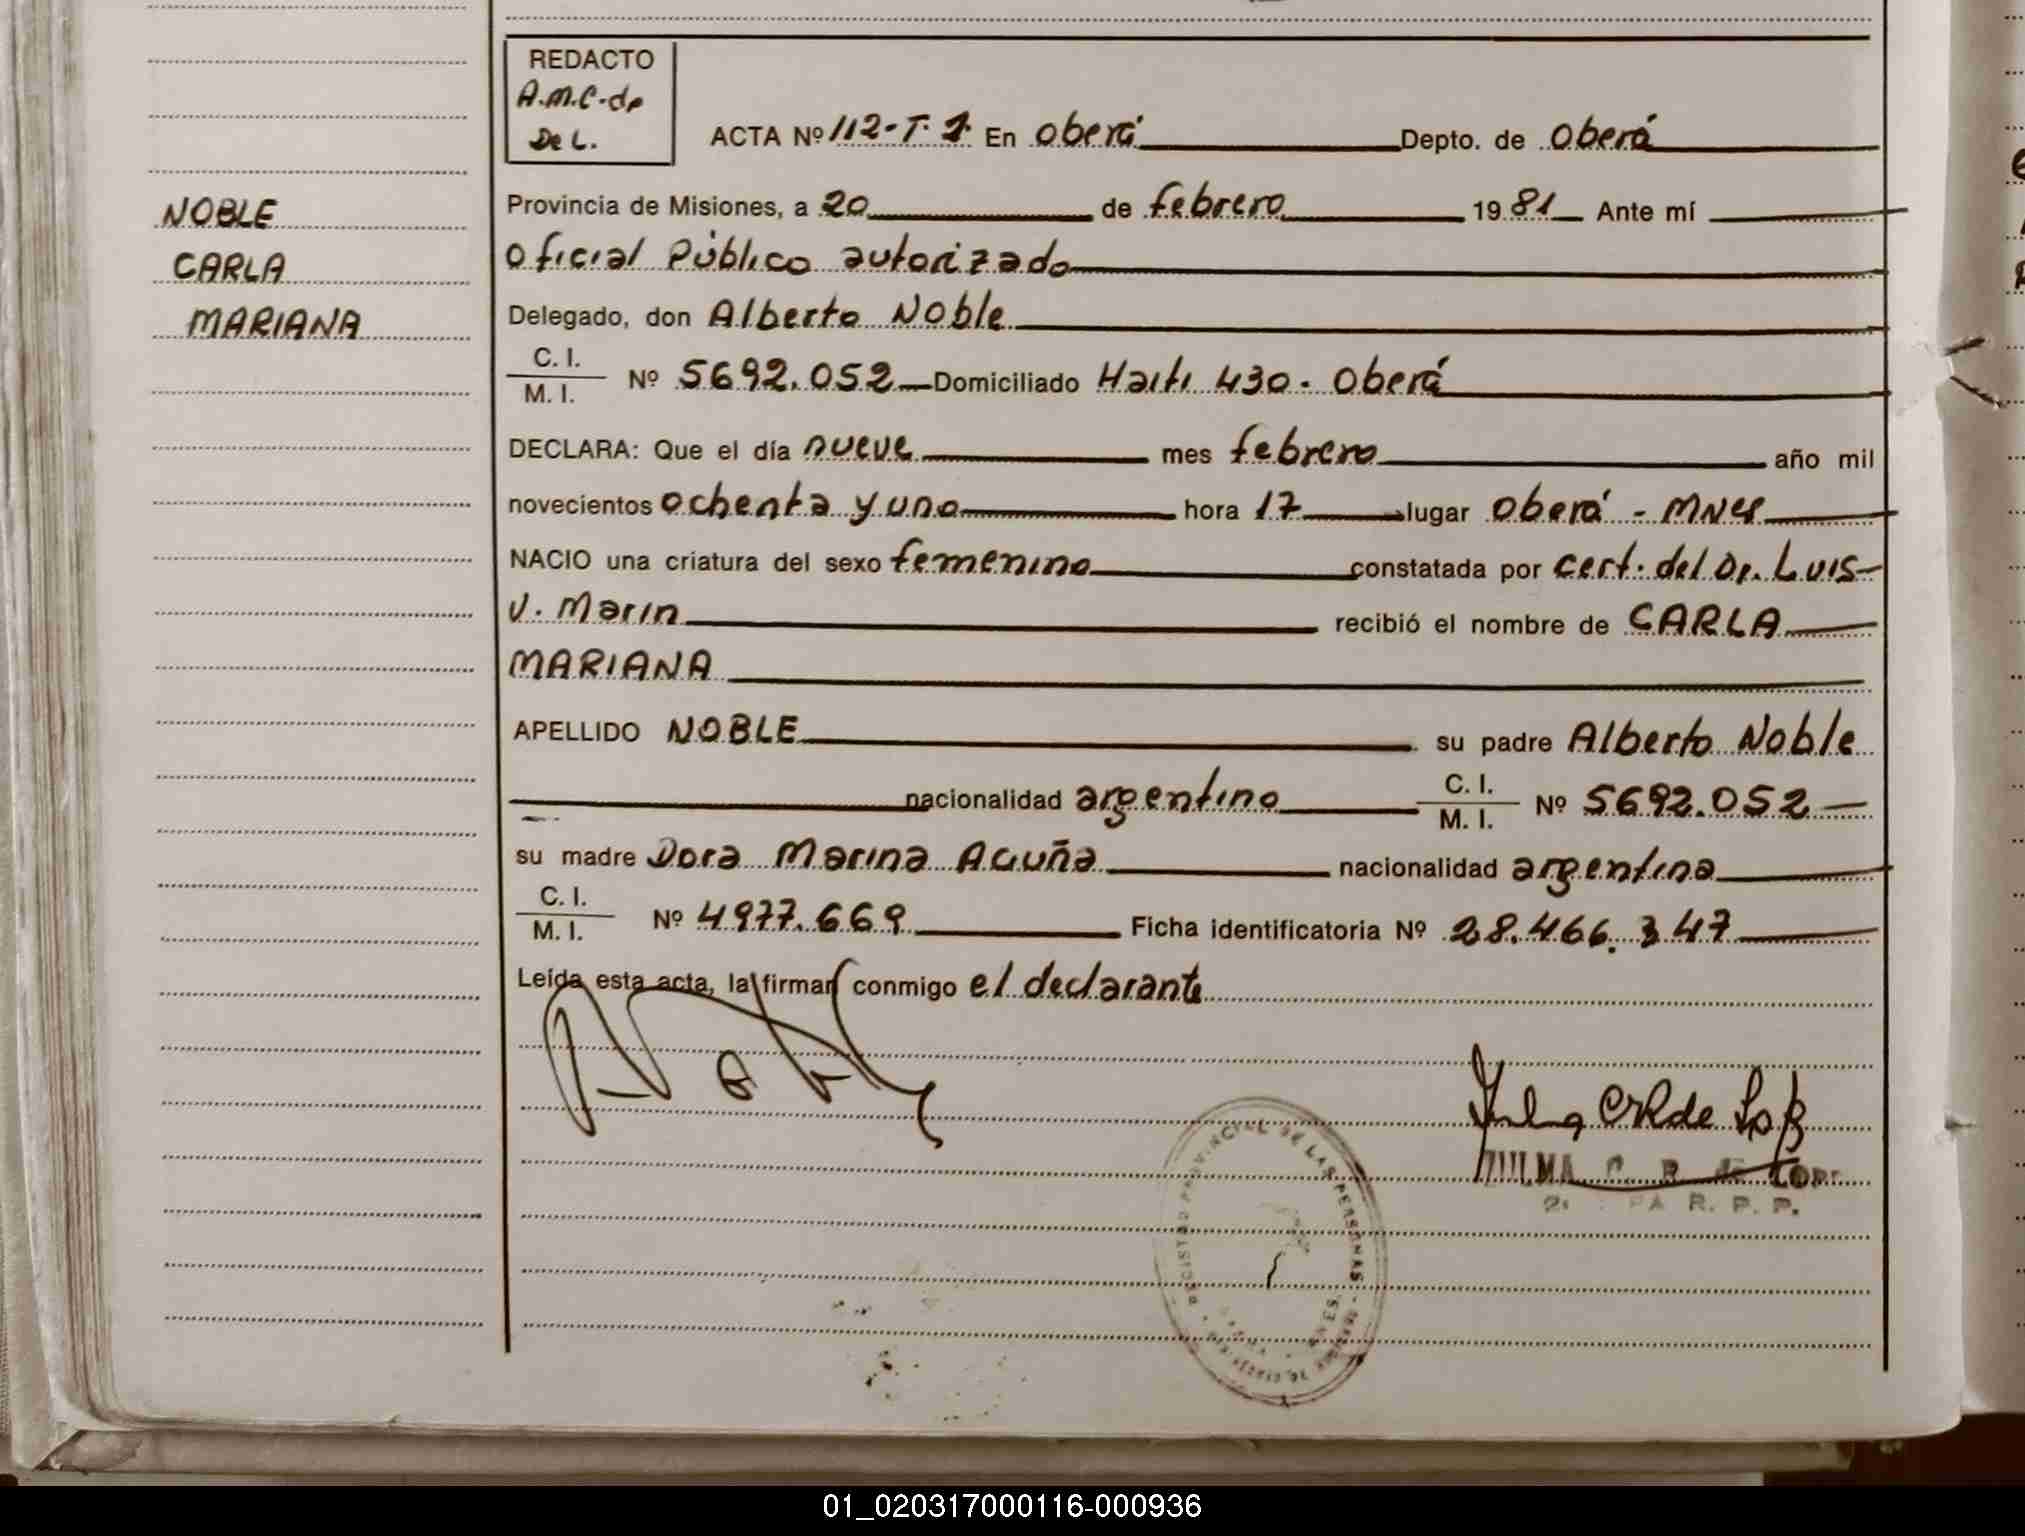 REDACTO
A.M.C. de
De L.
ACTA Nº 112-T. 1. En Oberá Depto. de Oberá
NOBLE
CARLA
MARIANA
Provincia de Misiones, a 20 de febrero 1981 Ante mí
Oficial Público autorizado
Delegado, don Alberto Noble
C. I.
M. I. Nº 5692.052 Domiciliado Haiti 430. Oberá
DECLARA: Que el día nueve mes febrero año mil
novecientos ochenta y uno hora 17 lugar Oberá - MNES
NACIO una criatura del sexo femenino constatada por cert. del Dr. Luis
V. Marin recibió el nombre de CARLA
MARIANA
APELLIDO NOBLE su padre Alberto Noble
nacionalidad argentino C. I.
M. I. Nº 5692.052
su madre Dora Marina Acuña nacionalidad argentina
C. I.
M. I. Nº 4977.669 Ficha identificatoria Nº 28.466.347
Leída esta acta, la firman conmigo el declarante
ZULMA C. R. de LOPE
R. P. P.
PROVINCIAL DE LAS PERSONAS
01_020317000116-000936